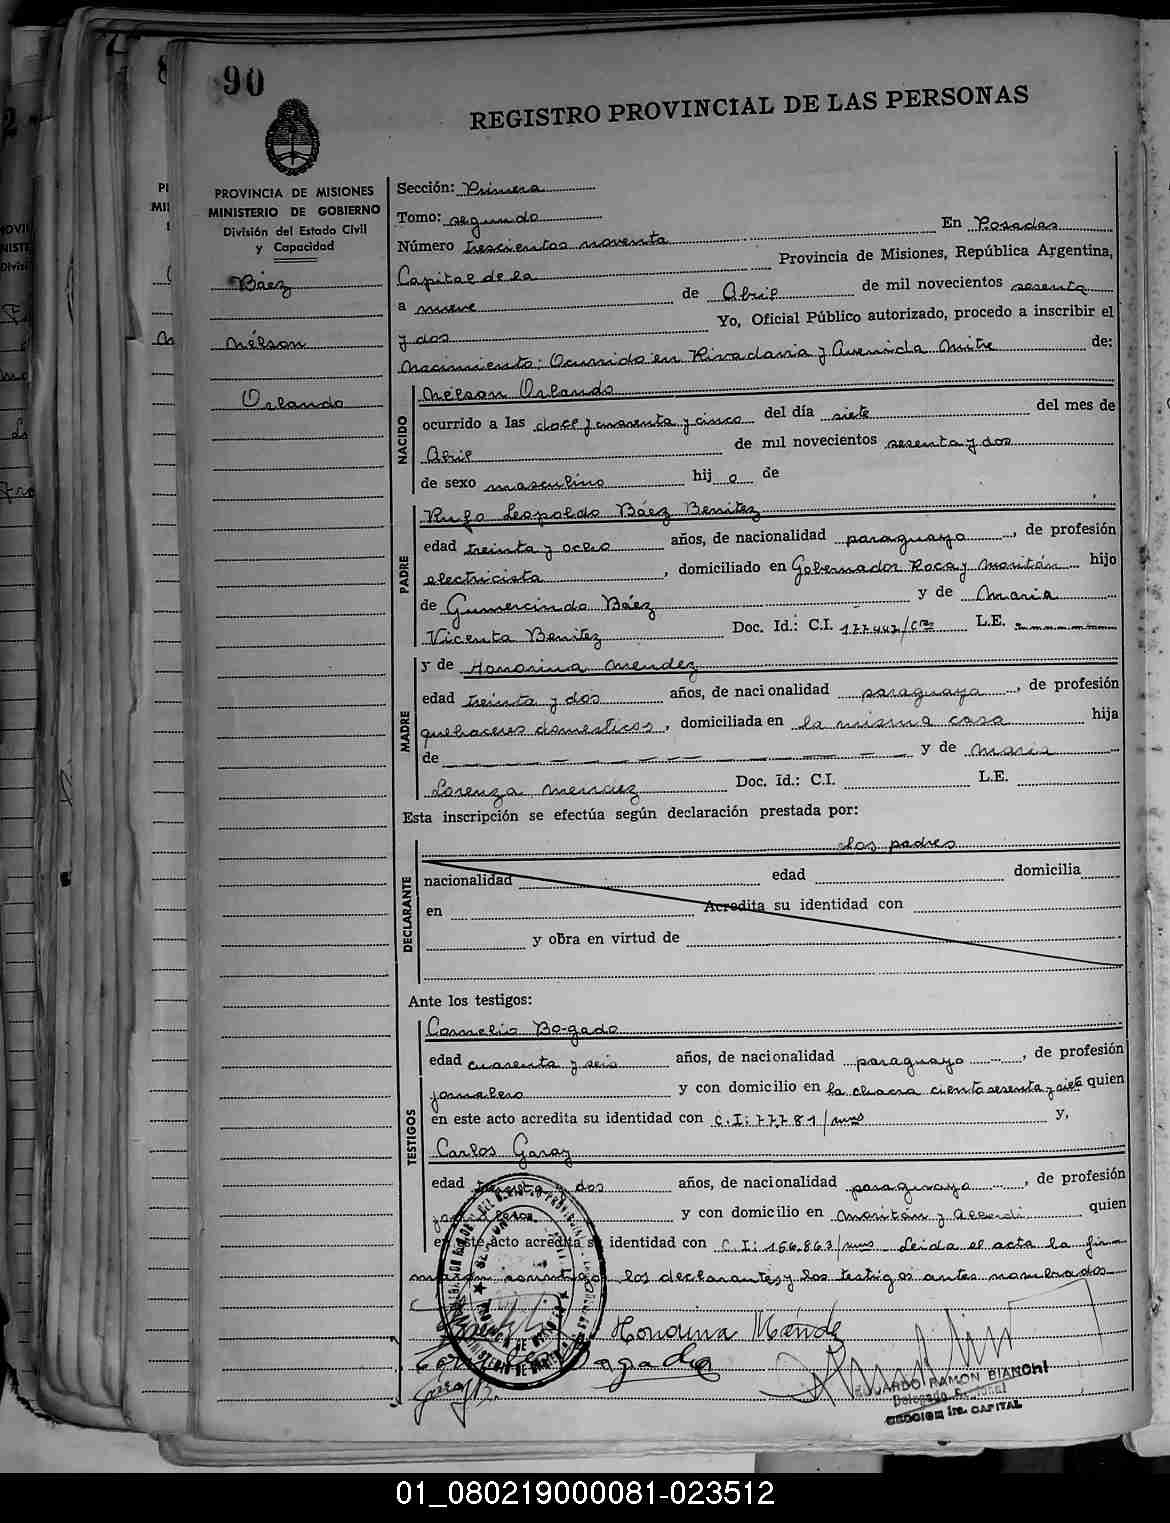 90
REGISTRO PROVINCIAL DE LAS PERSONAS
PROVINCIA DE MISIONES
MINISTERIO DE GOBIERNO
División del Estado Civil
y Capacidad
Báez
Nélson
Orlando
Sección: Primera
Tomo: segundo
Número trescientos noventa En Posadas
Capital de la Provincia de Misiones, República Argentina,
a nueve de Abril de mil novecientos sesenta
y dos Yo, Oficial Público autorizado, procedo a inscribir el
Nacimiento: Ocurrido en Rivadavia y Avenida Mitre de:
NACIDO
Nélson Orlando
ocurrido a las doce y cuarenta y cinco del día siete del mes de
Abril de mil novecientos sesenta y dos
de sexo masculino hij o de
PADRE
Rufo Leopoldo Báez Benitez
edad treinta y ocho años, de nacionalidad paraguaya, de profesión
electricista, domiciliado en Gobernador Roca y Moritán hijo
de Gumercindo Báez y de Maria
Vicenta Benitez Doc. Id.: C.I. 177.447/ L.E.
MADRE
y de Honorina Mendez
edad treinta y dos años, de nacionalidad paraguaya, de profesión
quehaceres domesticos, domiciliada en la misma casa hija
de y de Maria
Lorenza Mendez Doc. Id.: C.I. L.E.
Esta inscripción se efectúa según declaración prestada por:
DECLARANTE
los padres
nacionalidad edad domicilia
en Acredita su identidad con
y obra en virtud de
Ante los testigos:
TESTIGOS
Cornelio Bogado
edad cuarenta y seis años, de nacionalidad paraguayo, de profesión
jornalero y con domicilio en la chacra ciento sesenta y siete quien
en este acto acredita su identidad con C.I: 77.781/mns y,
Carlos Garay
edad treinta y dos años, de nacionalidad paraguaya, de profesión
y con domicilio en Moritán y quien
en este acto acredita su identidad con C.I: 156.863/mns Leida el acta la fir-
man conmigo los declarantes y los testigos antes nombrados
Honorina Méndez
Bogado
EDUARDO RAMON BIANCHI
Delegado
SECCION 1ra. CAPITAL
01_080219000081-023512